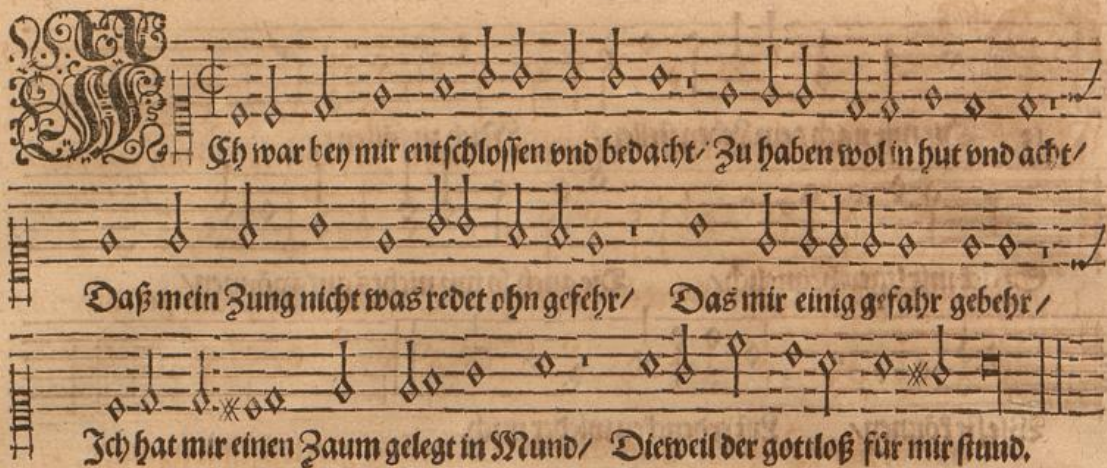 ICh war bey mir entschlossen vnd bedacht/ Zu haben wol in hut vnd acht/
Daß mein Zung nicht was redet ohn gefehr/ Das mir einig gefahr gebehr/
Ich hat mir einen Zaum gelegt in Mund/ Dieweil der gottloß für mir stund.